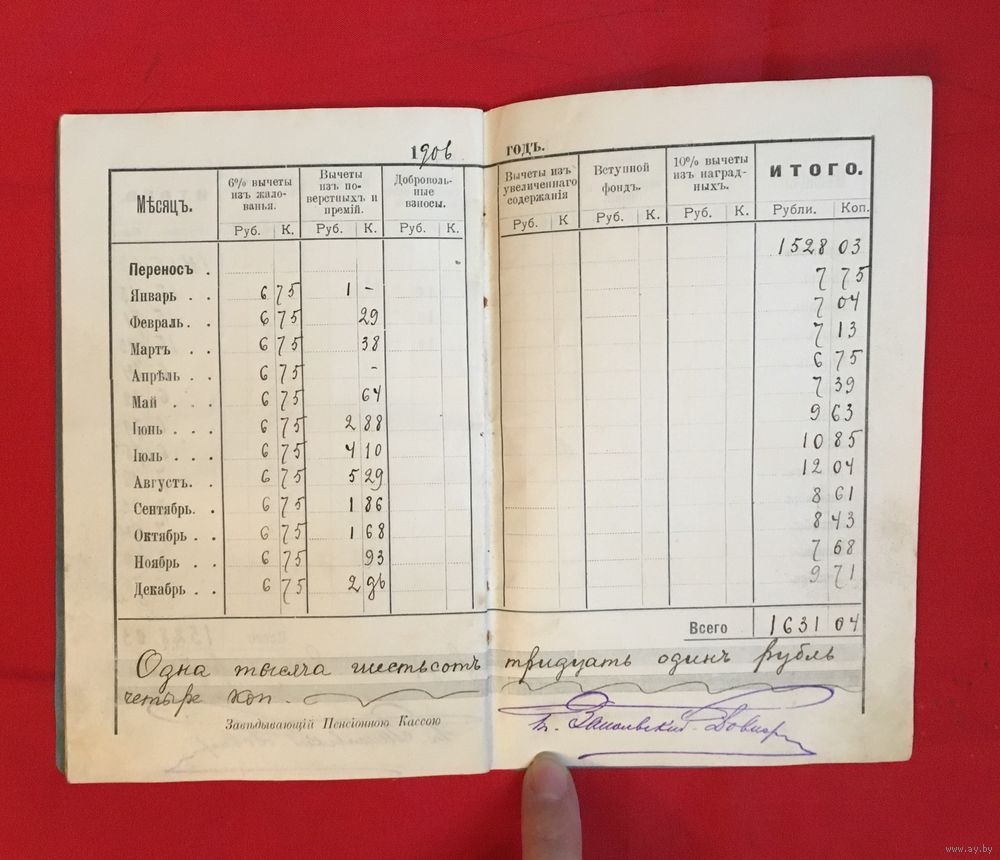 1906 годъ.
Мѣсяцъ. 6% вычеты изъ жало- ванья. Вычеты изъ по- верстныхъ и премій. Доброволь- ные взносы. Вычеты изъ увеличеннаго содержанія Вступной фондъ. 10% вычеты изъ наград- ныхъ. ИТОГО.
Руб. К. Руб. К. Руб. К. Руб. К Руб. К. Руб. К. Рубли. Коп.
Переносъ . 1528 03
Январь . . 6 75 1 - 7 75
Февраль. . 6 75 29 7 04
Мартъ . . 6 75 38 7 13
Апрѣль . . 6 75 - 6 75
Май . . . 6 75 64 7 39
Іюнь . . . 6 75 2 88 9 63
Іюль . . . 6 75 4 10 10 85
Августъ. . 6 75 5 29 12 04
Сентябрь. . 6 75 1 86 8 61
Октябрь . . 6 75 1 68 8 43
Ноябрь . . 6 75 93 7 68
Декабрь . . 6 75 2 96 9 71
Всего 1631 04
Одна тысяча шестьсотъ тридцать одинъ рубль
четыре коп.
Завѣдывающій Пенсіонною Кассою
www.ay.by